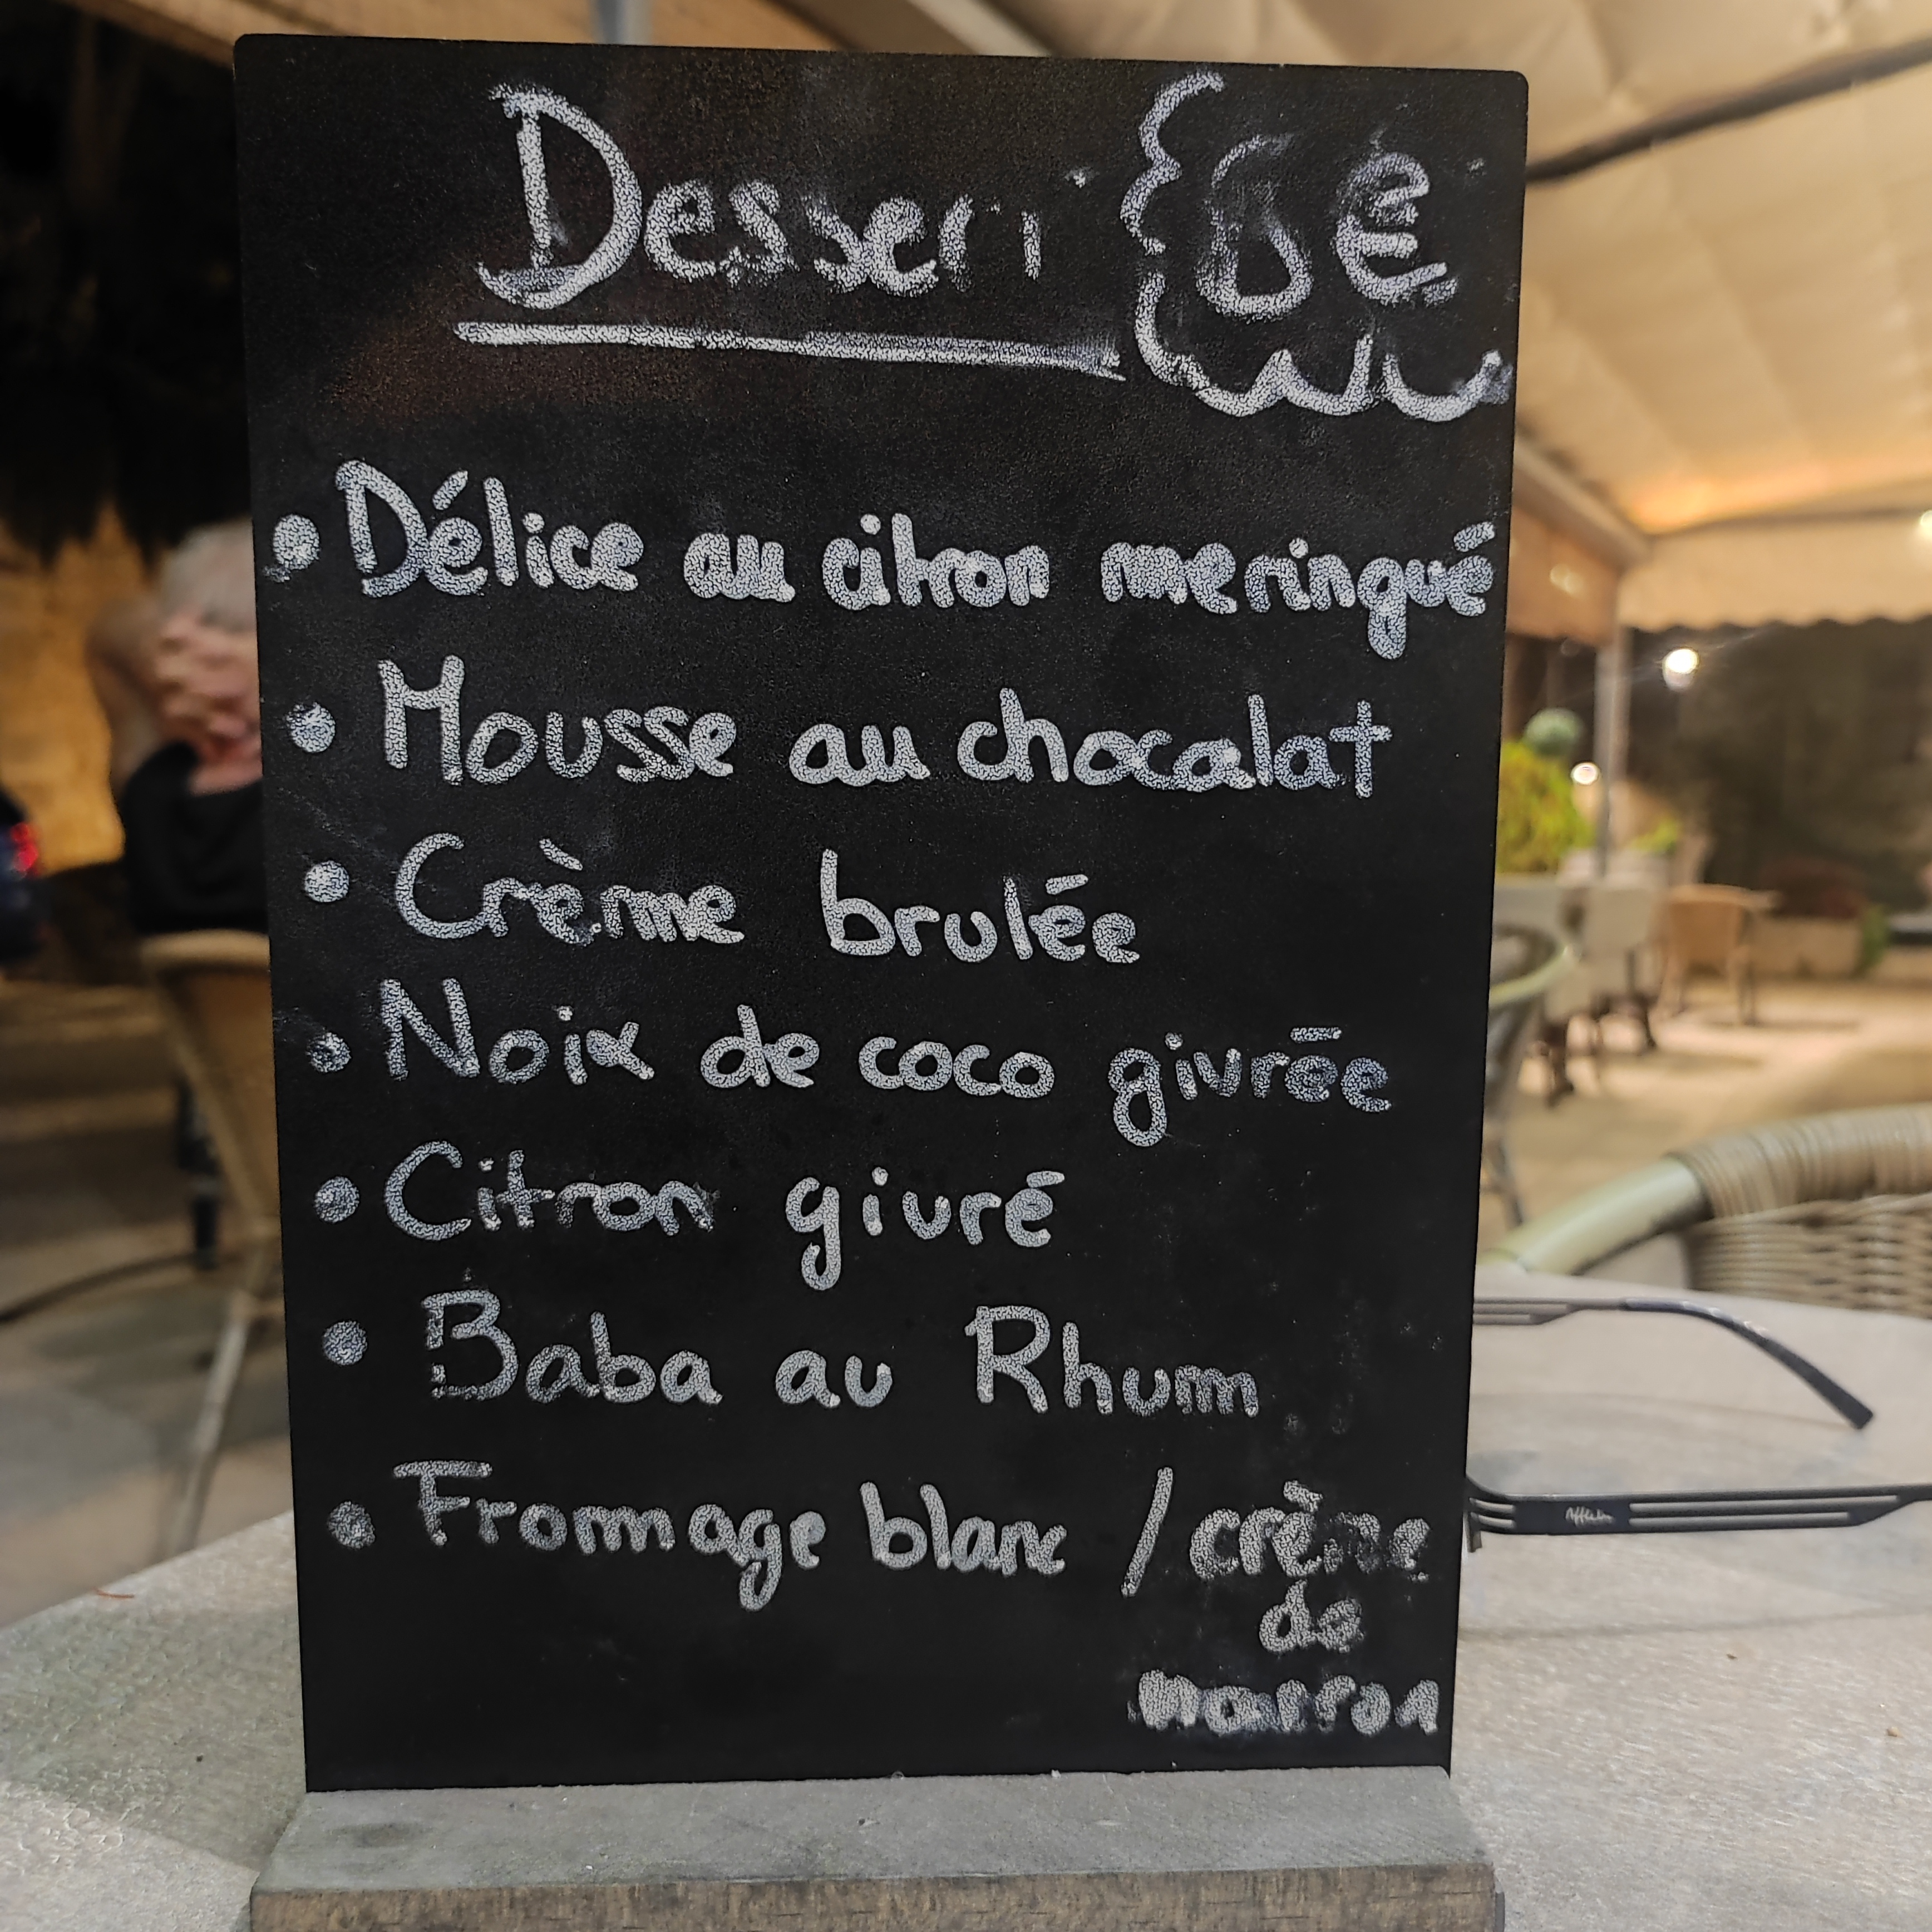 Dessert 6€
• Délice au citron meringué
• Mousse au chocalat
• Crème brulée
• Noix de coco givrée
• Citron givré
• Baba au Rhum
• Fromage blanc / crème
de
marron